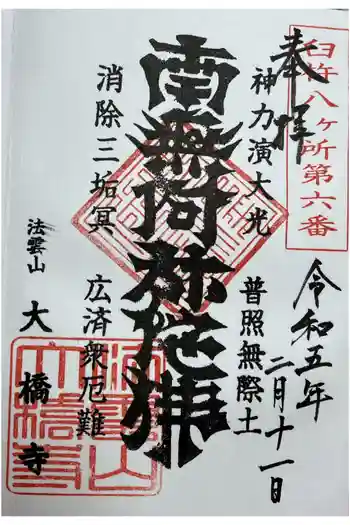 奉拝
臼杵八ヶ所第六番
令和五年
二月十一日
神力演大光
普照無際土
南無阿弥陀佛
消除三垢冥
広済衆厄難
法雲山
大橋寺